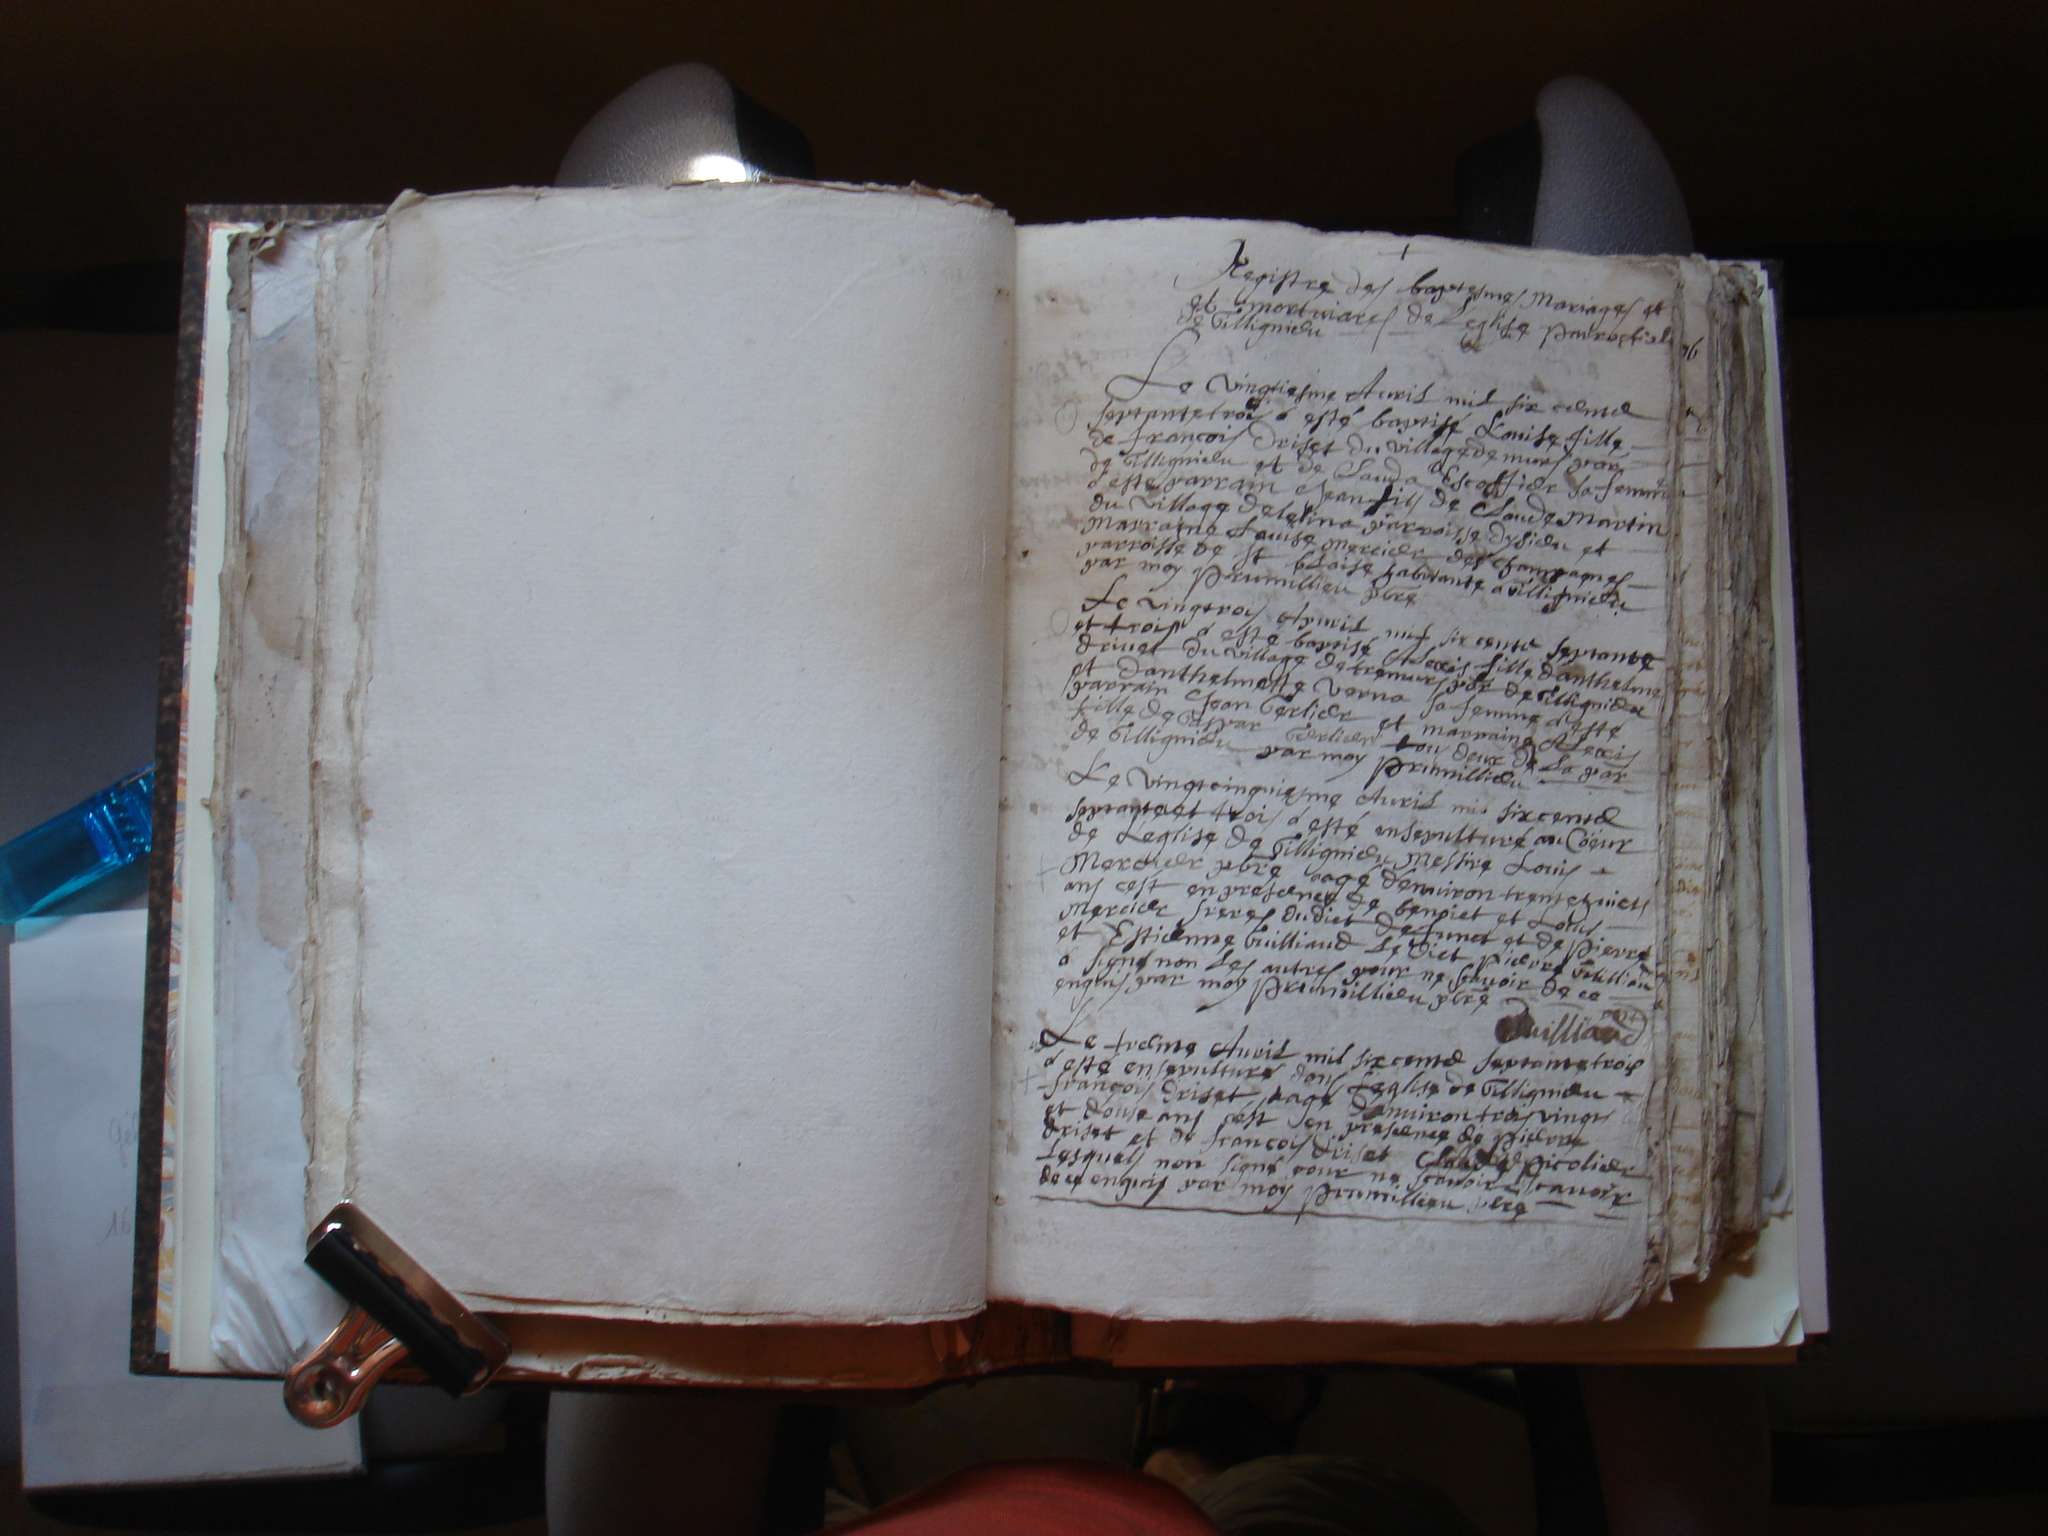 +
Registre des baptesmes Mariages et
et mortuaires de Leglise parrochiale
de Tillignieu
Le vingtiesme Auril mil six cents
septante trois a esté baptisé Louise fille
de françois Driset du village de murs par
de Tillignieu et de Clauda Escoffier sa femme
a esté parrain Jean fils de Claude Martin
du village de parroisse dysieu et
Marraine Louise Mercier des Champagnes
parroisse de st blaise habitante a Tillignieu
par moy Prumillieu pbre
Le vingtrois Auril mil six cents septante
et trois a esté baptisé Alexis fille danthelme
driuet du village de tremurs par de Tillignieu
et danthelmette Verna sa femme a esté
parrain Jean Terlier et marraine Alexis
fille de Gaspar Terlier tou deux de La par
de Tillignieu par moy Prumillieu
Le vingtcinquiesme Auril mil six cents
septante et trois a esté ensepulturé au Cöeur
de Leglise de Tillignieu Messire Louis
Mercier pbre aagé denuiron trente huict
ans cest en presence de benoict et Louis
Mercier freres dudict defunct et de Pierre
et Estienne Guilliaud Le dict Pierre Guilliau
a signé non Les autres pour ne scauoir de ce
enquis par moy Prumillieu pbre
Guilliaud
Le trente Auril mil six cents septante trois
a esté ensepulturé dans Leglise de Tillignieu
françois Driset aagé denuiron trois vingts
et douse ans cest en presence de Pierre
driset et de françois Driset Claude Picolier
Lesquels non signé pour ne scauoir scauoir
de ce enquis par moy Prumillieu pbre